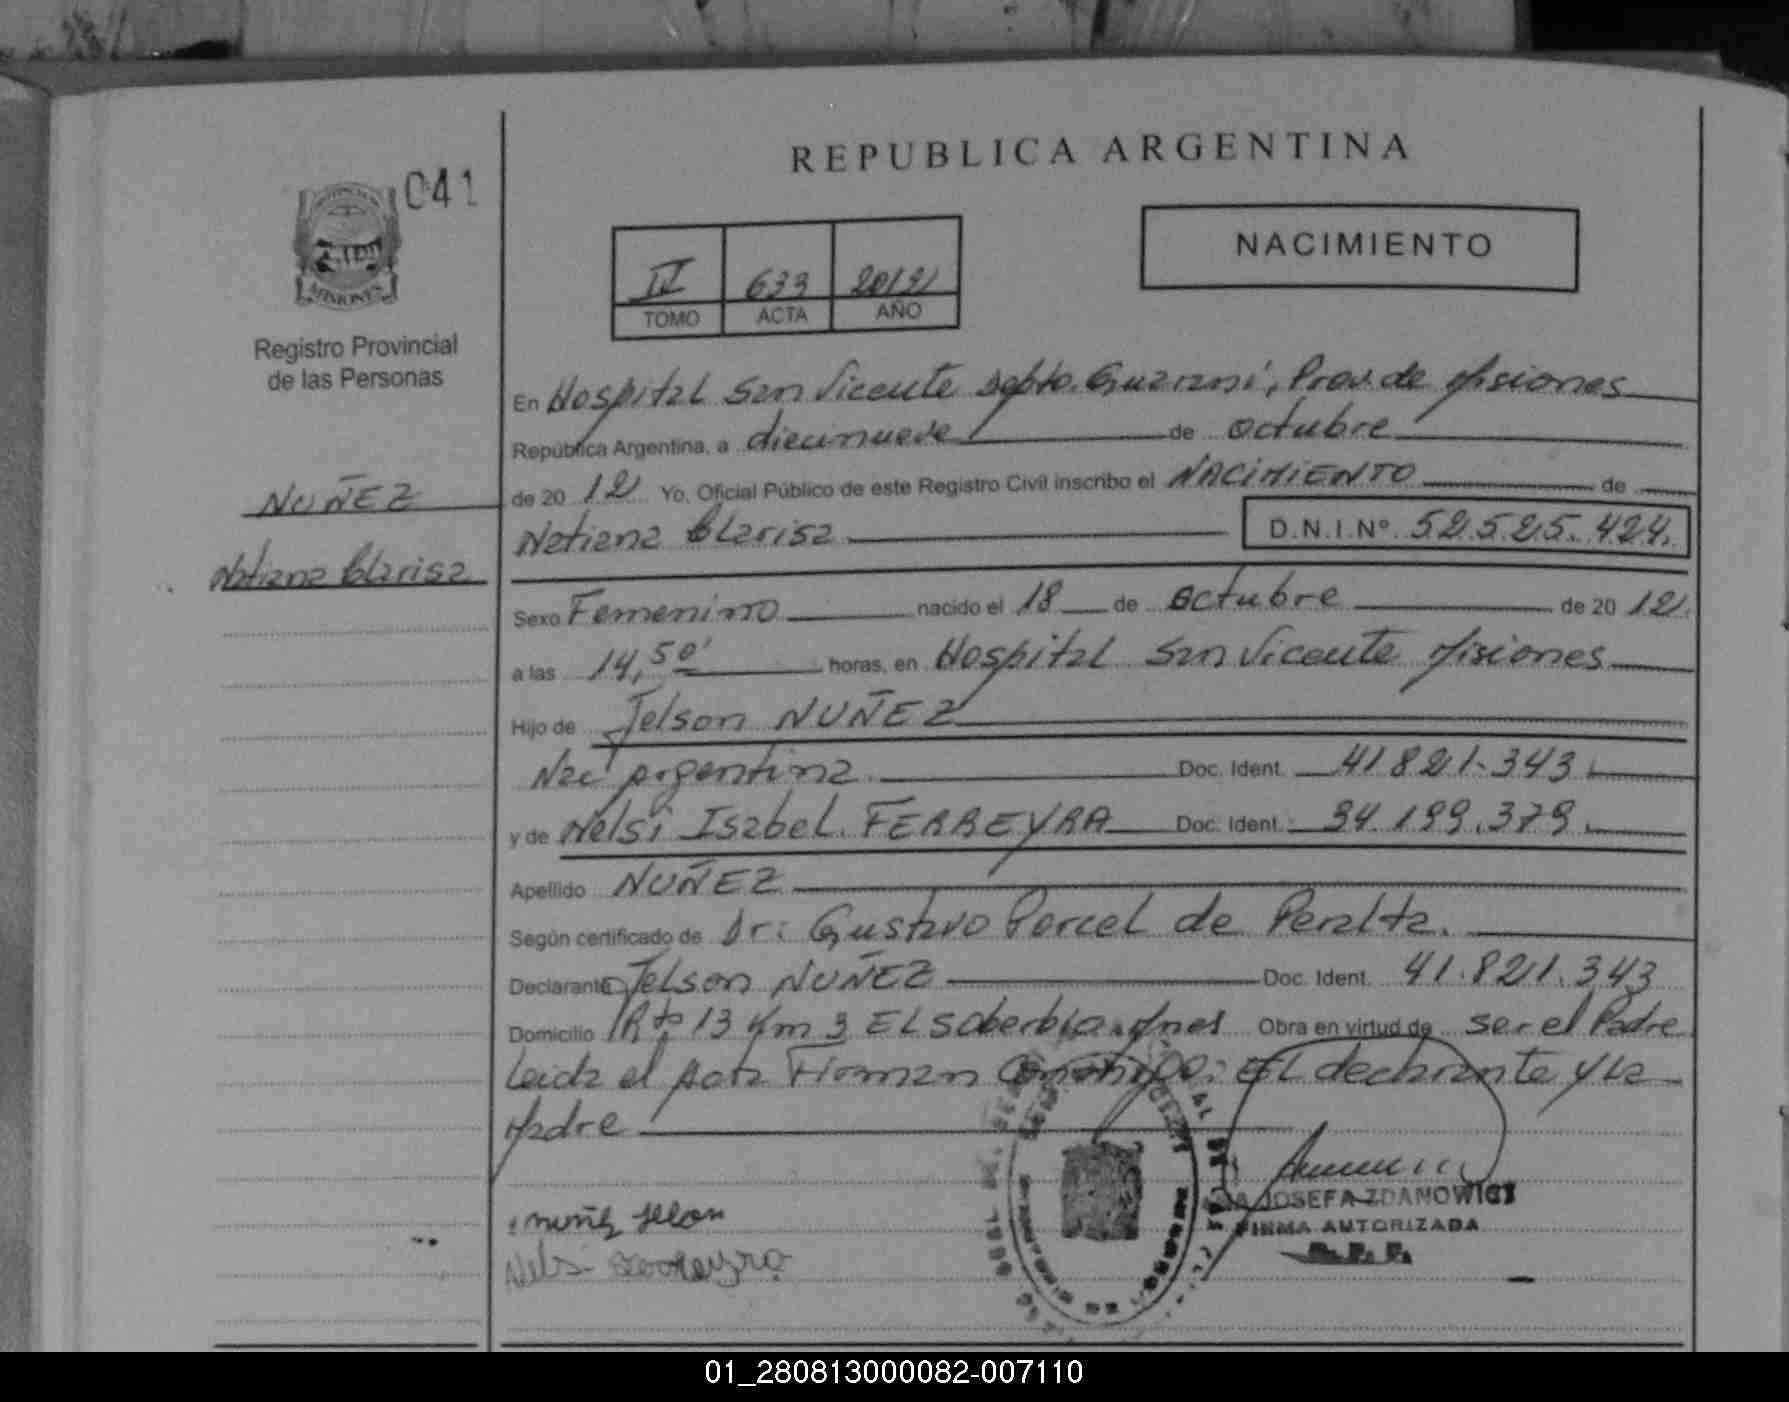 REPUBLICA ARGENTINA
041
MISIONES
Registro Provincial
de las Personas
NUÑEZ
Natiana Clarisa
IV 633 2012
TOMO ACTA AÑO
NACIMIENTO
En Hospital San Vicente Depto. Guarani, Prov. de Misiones
República Argentina, a diecinueve de octubre
de 20 12 Yo, Oficial Público de este Registro Civil inscribo el NACIMIENTO de
Natiana Clarisa D.N.I.Nº 52.525.424.
Sexo Femenino nacido el 18 de octubre de 20 12
a las 14,50' horas, en Hospital San Vicente Misiones
Hijo de Jelson NUÑEZ
Nac argentina Doc. Ident. 41.821.343
y de Nelsi Isabel FERREYRA Doc. Ident. 34.199.379
Apellido NUÑEZ
Según certificado de Dr: Gustavo Porcel de Peralta.
Declarante Jelson NUÑEZ Doc. Ident. 41.821.343
Domicilio Rta 13 Km 3 El Soberbio. Mnes Obra en virtud de ser el Padre
Leida el Acta Firman Conmigo: El declarante y La
Madre
nuñez jelson
Nelsi ferreyra
JOSEFA ZDANOWICZ
FIRMA AUTORIZADA
R. P. P.
01_280813000082-007110